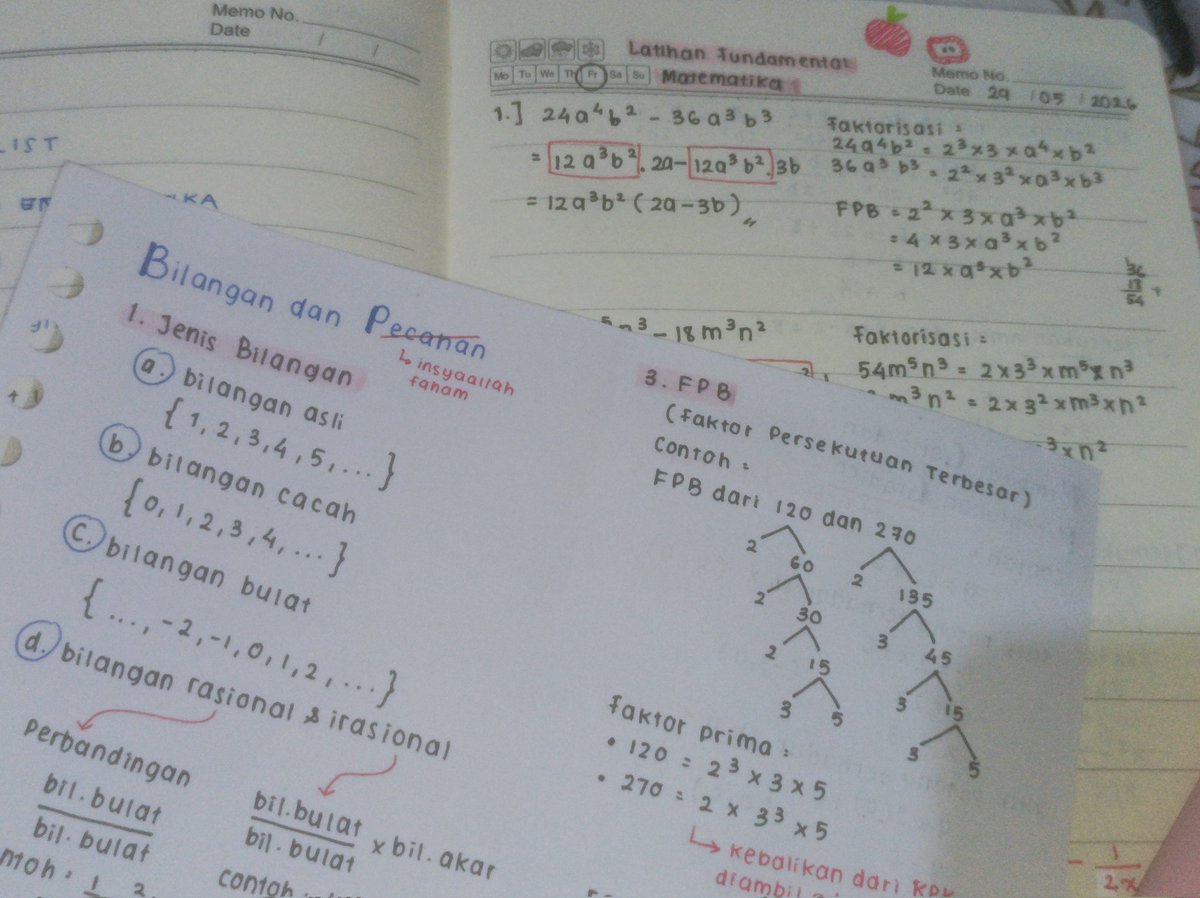 Memo No.
Date / /
LIST
KA
Latihan fundamental
Matematika 1
Mo Tu We Th Fr Sa Su
Memo No.
Date 29 / 05 / 2026
1.] 24a⁴b² - 36a³b³
= 12a³b² . 2a - 12a³b² . 3b
= 12a³b² (2a - 3b)
faktorisasi :
24a⁴b² = 2³ × 3 × a⁴ × b²
36a³b³ = 2² × 3² × a³ × b³
FPB = 2² × 3 × a³ × b²
= 4 × 3 × a³ × b²
= 12 × a³ × b²
36
18
54 +
⁵n³ - 18m³n²
faktorisasi :
54m⁵n³ = 2 × 3³ × m⁵ × n³
m³n² = 2 × 3² × m³ × n²
³ × n²
Bilangan dan Pecahan
↳ insyaallah
faham
1. Jenis Bilangan
a. bilangan asli
{ 1, 2, 3, 4, 5, ... }
b. bilangan cacah
{ 0, 1, 2, 3, 4, ... }
c. bilangan bulat
{ ..., -2, -1, 0, 1, 2, ... }
d. bilangan rasional & irasional
Perbandingan
bil. bulat
bil. bulat
bil. bulat
bil. bulat × bil. akar
ntoh : 1 2
contoh
3. FPB
(faktor Persekutuan Terbesar)
Contoh :
FPB dari 120 dan 270
2 60 2 135
2 30 3 45
2 15 3 15
3 5 3 5
faktor prima :
• 120 = 2³ × 3 × 5
• 270 = 2 × 3³ × 5
↳ kebalikan dari KPK
diambil
- 1
2x